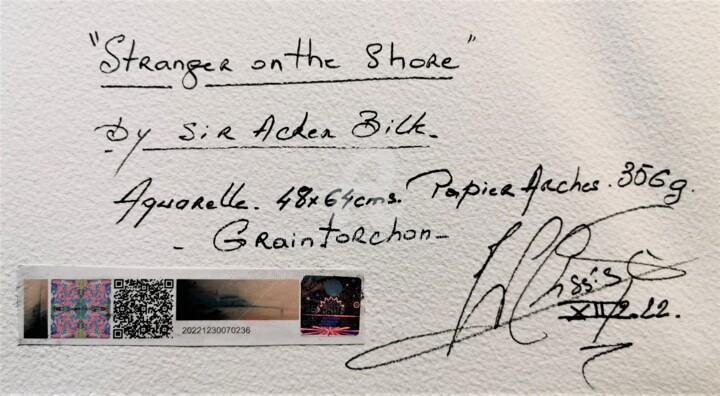 "Stranger on the Shore"
By Sir Acker Bilk.
Aquarelle. 48x64cms. Papier Arches. 356g.
- Grain Torchon -
20221230070236
XII/2.22.